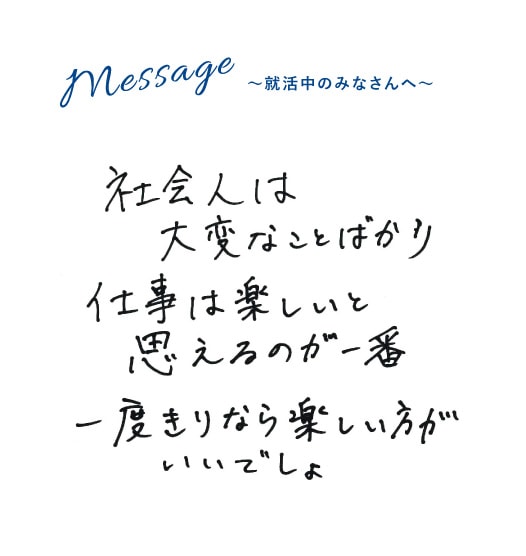 Message ～就活中のみなさんへ～
社会人は
大変なことばかり
仕事は楽しいと
思えるのが一番
一度きりなら楽しい方が
いいでしょ